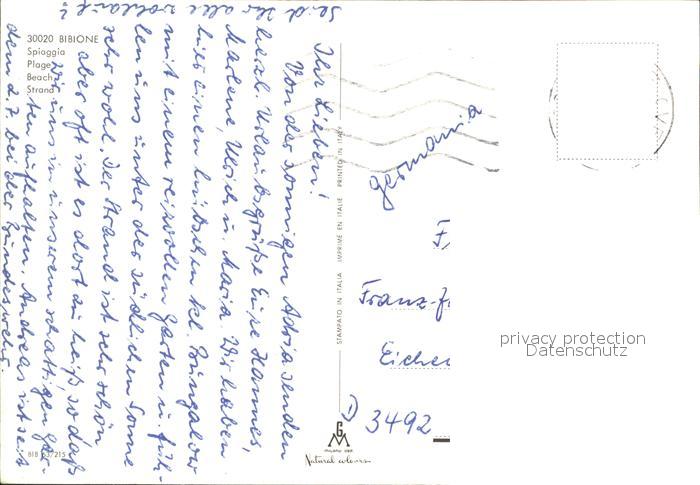 30020 BIBIONE
Spiaggia
Plage
Beach
Strand
Ihr Lieben!
Von der sonnigen Adria senden
herzl. Urlaubsgrüße Eure Hannes,
Marlene, Ulrich u. Maria. Wir haben
hier einen hübschen kl. Bungalow
mit einem reizvollen Garten u. füh-
len uns unter der südlichen Sonne
sehr wohl. Der Strand ist sehr schön
aber oft ist es dort zu heiß, so daß
wir uns in unserem schattigen Gar-
ten aufhalten. Andreas ist seit
dem d. 7. bei der Bundeswehr.
Seid Ihr alle wohlauf?
STAMPATO IN ITALIA IMPRIMÉ EN ITALIE PRINTED IN ITALY
Germania
F
Franz-
Eiche
D 3492
GM
Natural colours
BIB 53/215
privacy protection
Datenschutz